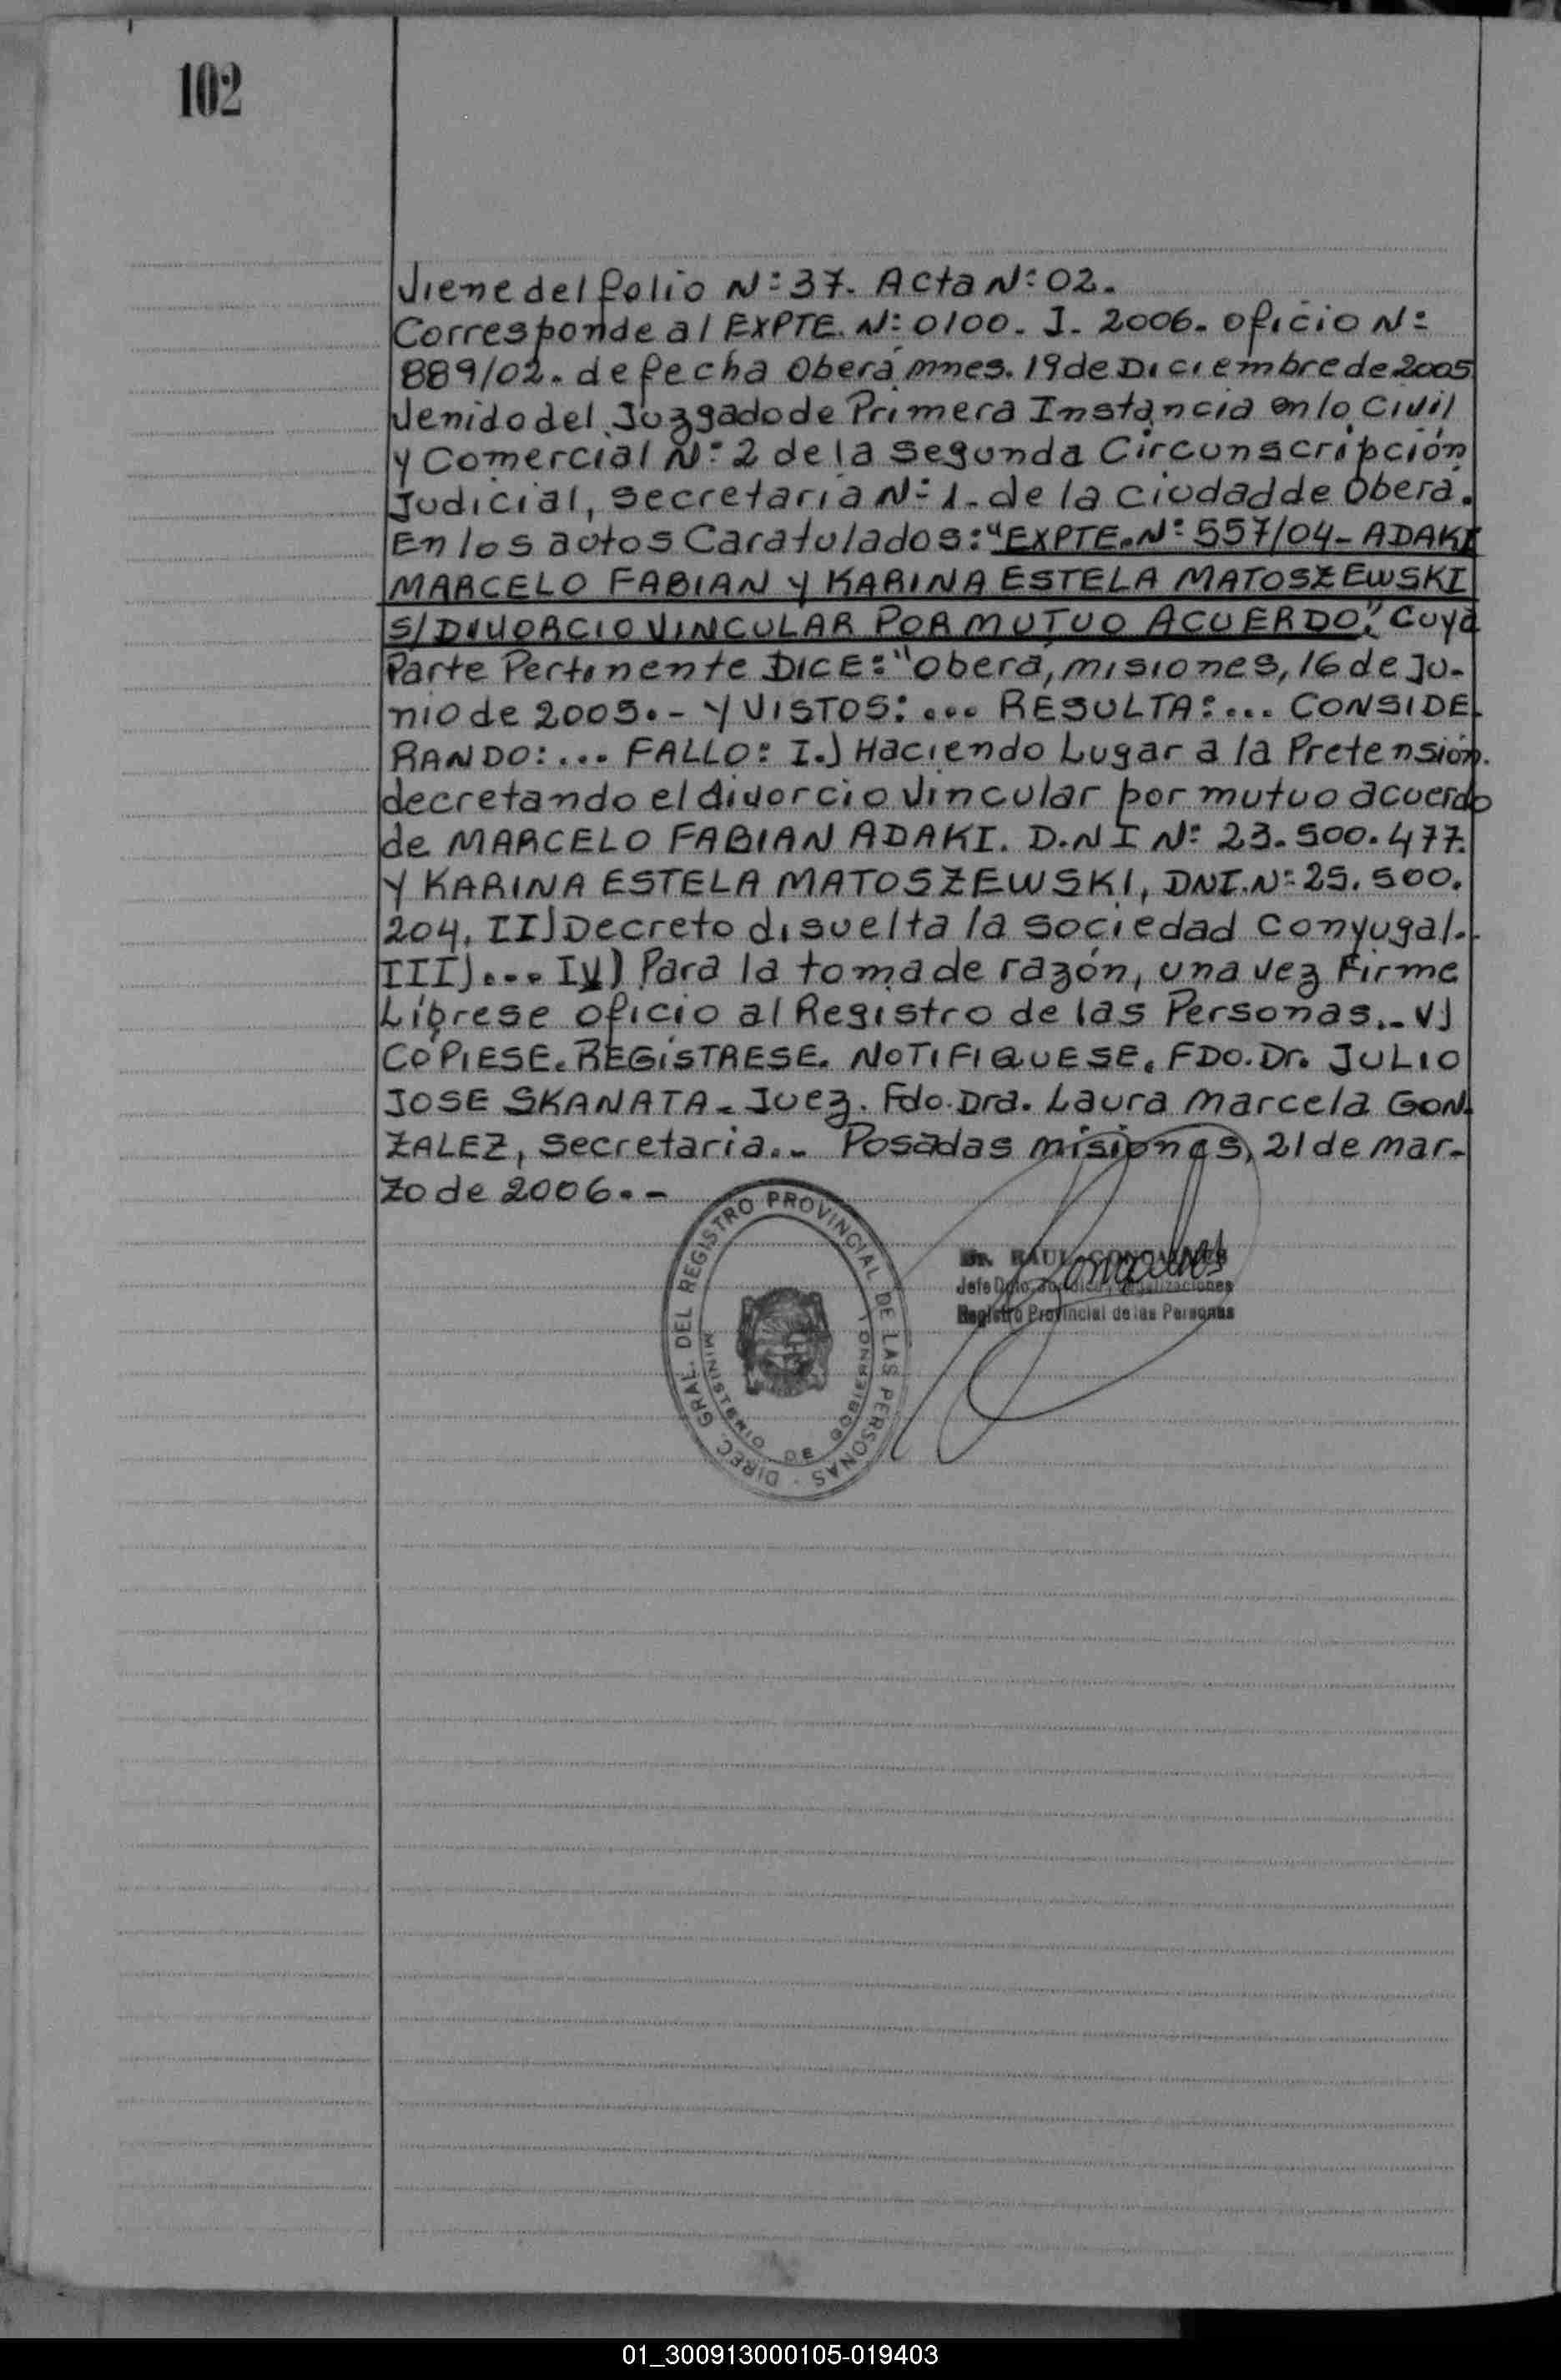 102
Viene del folio N: 37. Acta N: 02.
Corresponde al EXPTE. N: 0100. J. 2006. oficio N:
889/02. de fecha Oberá mnes. 19 de Diciembre de 2005
Venido del Juzgado de Primera Instancia en lo Civil
y Comercial N: 2 de la Segunda Circunscripción
Judicial, Secretaría N: 1. de la Ciudad de Oberá.
En los autos Caratulados: "EXPTE. N: 557/04 - ADAKI
MARCELO FABIAN Y KARINA ESTELA MATOSZEWSKI
S/ DIVORCIO VINCULAR POR MUTUO ACUERDO", Cuya
Parte Pertinente DICE: "Oberá, misiones, 16 de Ju-
nio de 2005.- Y VISTOS: ... RESULTA: ... CONSIDE-
RANDO: ... FALLO: I.) Haciendo Lugar a la Pretensión.
decretando el divorcio Vincular por mutuo acuerdo
de MARCELO FABIAN ADAKI. D.N I N: 23.500.477.
Y KARINA ESTELA MATOSZEWSKI, DNI. N: 25.500.
204. II) Decreto disuelta la sociedad Conyugal.-
III)... IV) Para la toma de razón, una vez Firme
Líbrese oficio al Registro de las Personas.- V)
COPIESE. REGISTRESE. NOTIFIQUESE. FDO. Dr. JULIO
JOSE SKANATA - Juez. Fdo. Dra. Laura Marcela GON-
ZALEZ, Secretaria.- Posadas misiones, 21 de mar-
zo de 2006.-
DIREC. GRAL. DEL REGISTRO PROVINCIAL DE LAS PERSONAS
MINISTERIO DE GOBIERNO
Dr. RAUL GONCALVES
Jefe Dpto. Jurídico y Legalizaciones
Registro Provincial de las Personas
01_300913000105-019403